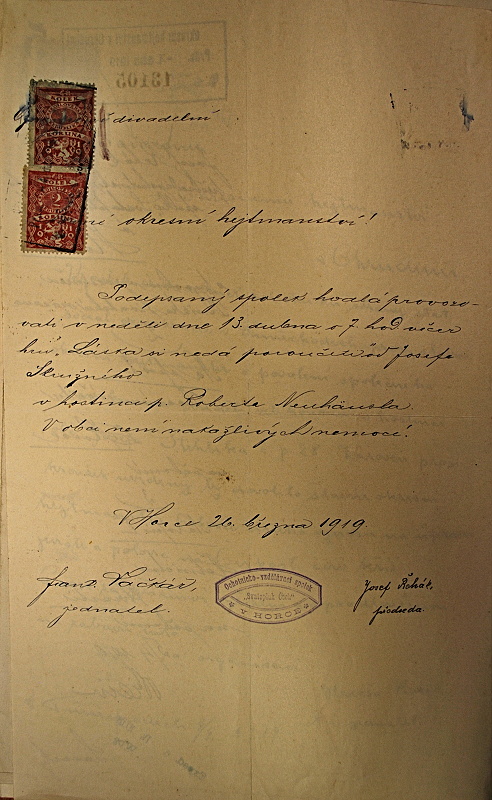 13105
KOLEK
KORUNA
KOLEK
2
divadelní
okresní hejtmanství!
Podepsaný spolek hodlá provozo-
vati v neděli dne 13. dubna o 7. hod. večer
hru „Láska si nedá poroučeti“ od Josefa
Skružného
v hostinci p. Roberta Neuhäusla.
V obci není nakažlivých nemocí.
V Horce 26. března 1919.
Frant.
jednatel.
Ochotnicko-vzdělávací spolek
"Svatopluk Čech"
V HORCE
Josef Řehák,
předseda.